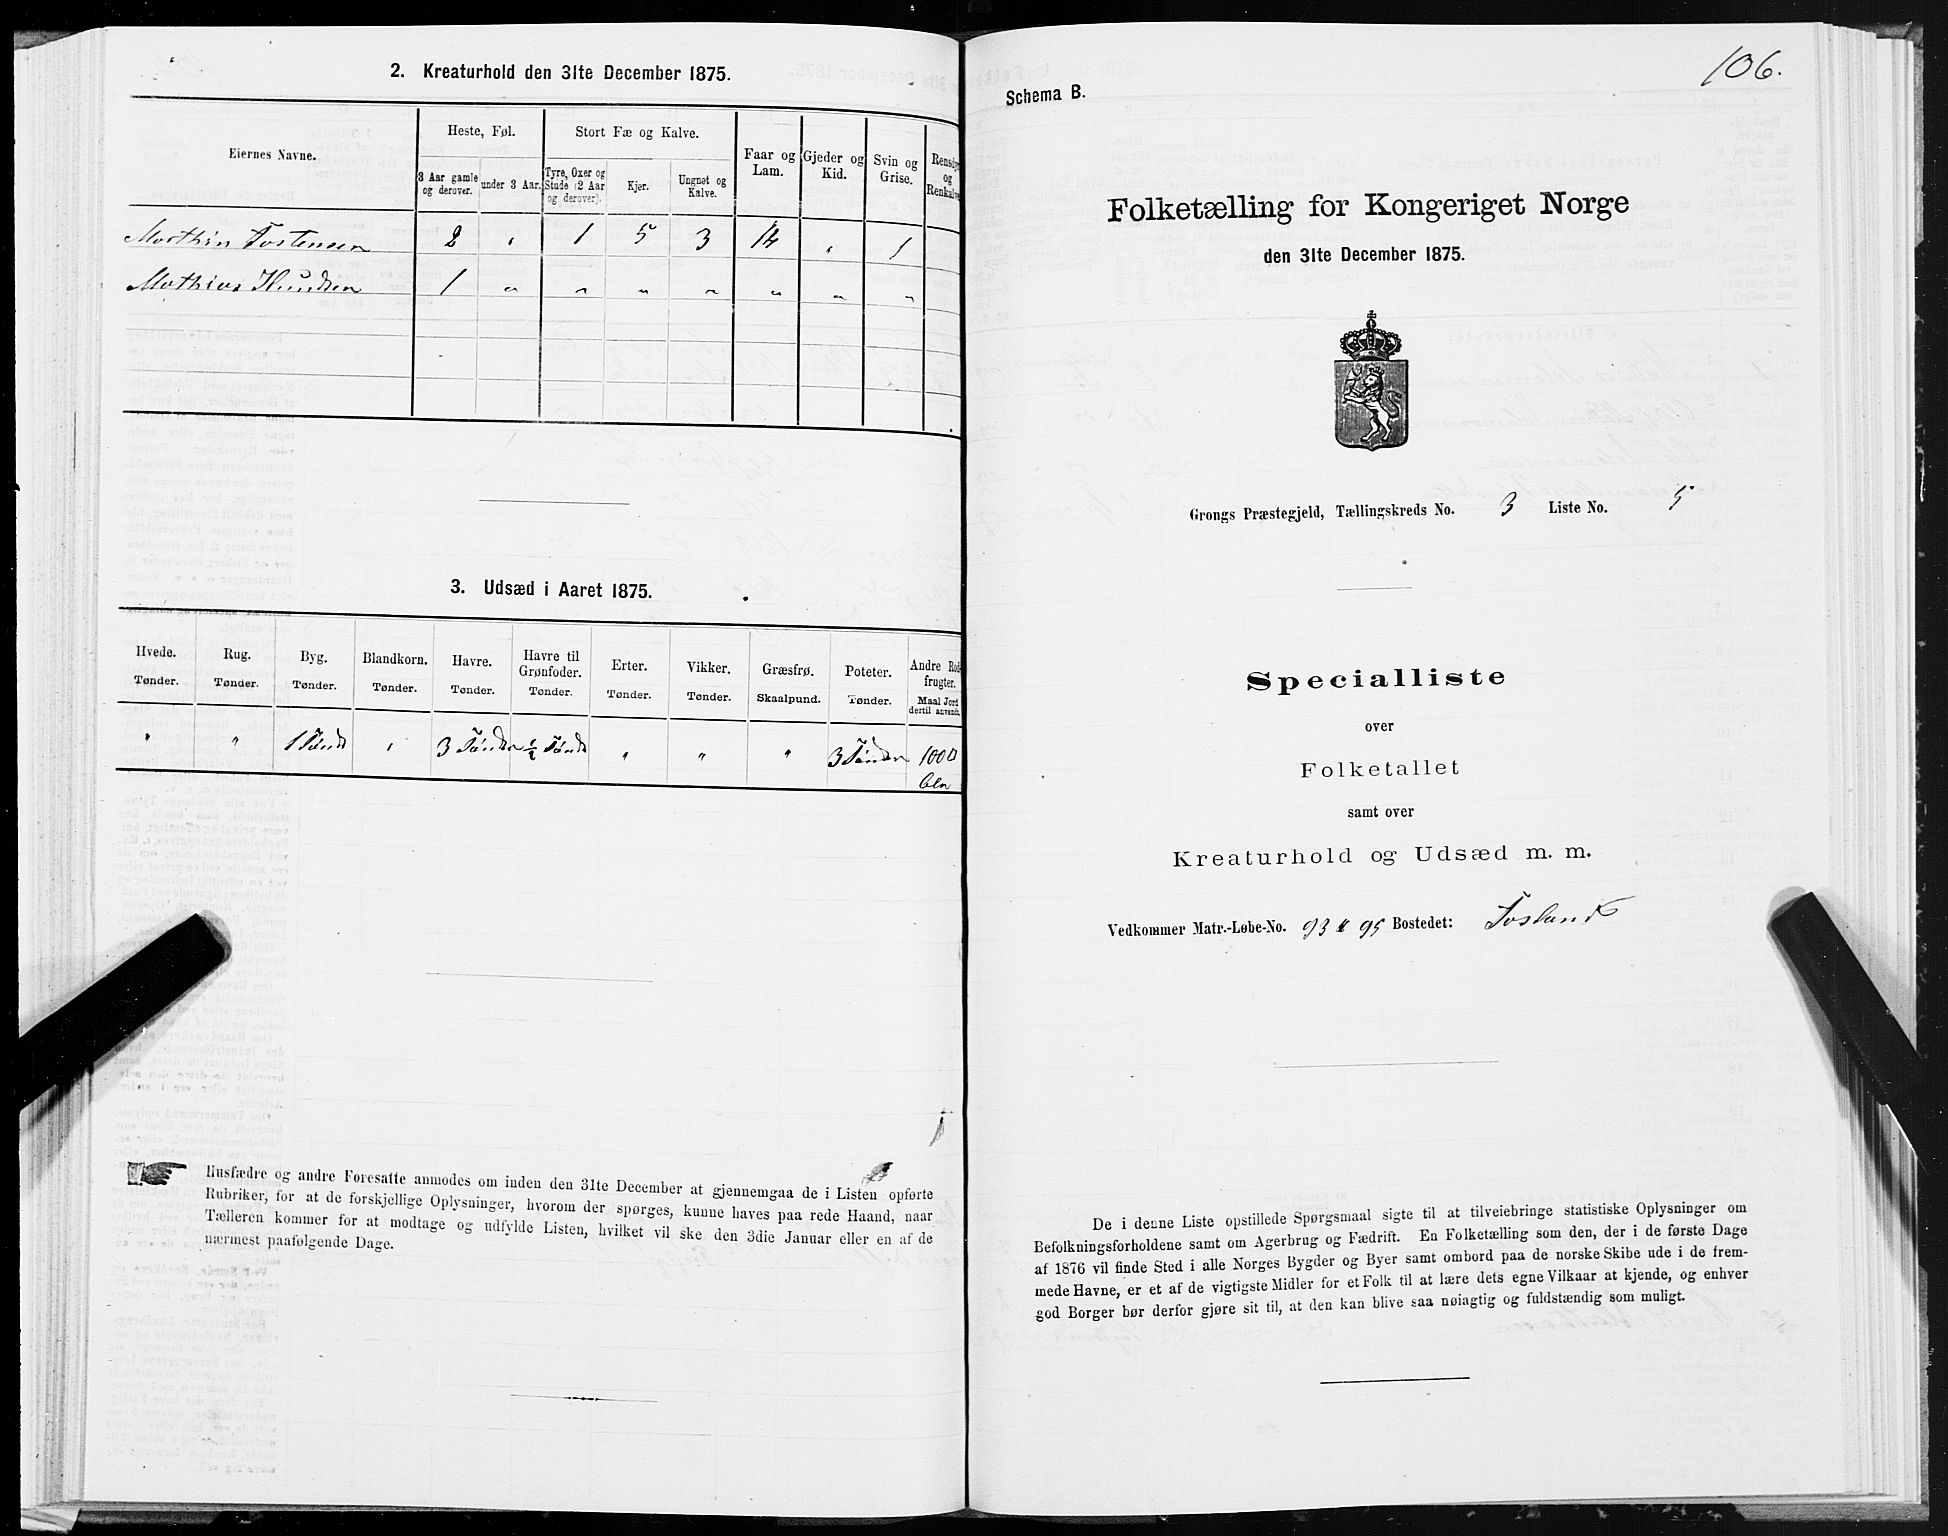 2. Kreaturhold den 31te December 1875.
Eiernes Navne.
Heste, Føl.
Stort Fæ og Kalve.
Faar og Lam.
Gjeder og Kid.
Svin og Grise.
Rensdyr og Renkalve
3 Aar gamle og derover.
under 3 Aar.
Tyre, Oxer og Stude (2 Aar og derover).
Kjer.
Ungnøt og Kalve.
Morthin Tostensen 2 " 1 5 3 14 " 1
Mathias Knudsen 1 " " " " " " "
3. Udsæd i Aaret 1875.
Hvede. Rug. Byg. Blandkorn. Havre. Havre til Grønfoder. Erter. Vikker. Græsfrø. Poteter. Andre Rodfrugter.
Tønder. Tønder. Tønder. Tønder. Tønder. Tønder. Tønder. Tønder. Skaalpund. Tønder. Maal Jord dertil anvendt.
" " 1 Tønde " 3 Tønder ½ Tønde " " " 3 Tønder 100 □
Husfædre og andre Foresatte anmodes om inden den 31te December at gjennemgaa de i Listen opførte
Rubriker, for at de forskjellige Oplysninger, hvorom der spørges, kunne haves paa rede Haand, naar
Tælleren kommer for at modtage og udfylde Listen, hvilket vil ske den 3die Januar eller en af de
nærmest paafølgende Dage.
106.
Schema B.
Folketælling for Kongeriget Norge
den 31te December 1875.
Grongs Præstegjeld, Tællingskreds No. 3 Liste No. 5
Specialliste
over
Folketallet
samt over
Kreaturhold og Udsæd m. m.
Vedkommer Matr.-Løbe-No. 93 & 95 Bostedet: Tosland
De i denne Liste opstillede Spørgsmaal sigte til at tilveiebringe statistiske Oplysninger om
Befolkningsforholdene samt om Agerbrug og Fædrift. En Folketælling som den, der i de første Dage
af 1876 vil finde Sted i alle Norges Bygder og Byer samt ombord paa de norske Skibe ude i de frem-
mede Havne, er et af de vigtigste Midler for et Folk til at lære dets egne Vilkaar at kjende, og enhver
god Borger bør derfor gjøre sit til, at den kan blive saa nøiagtig og fuldstændig som muligt.